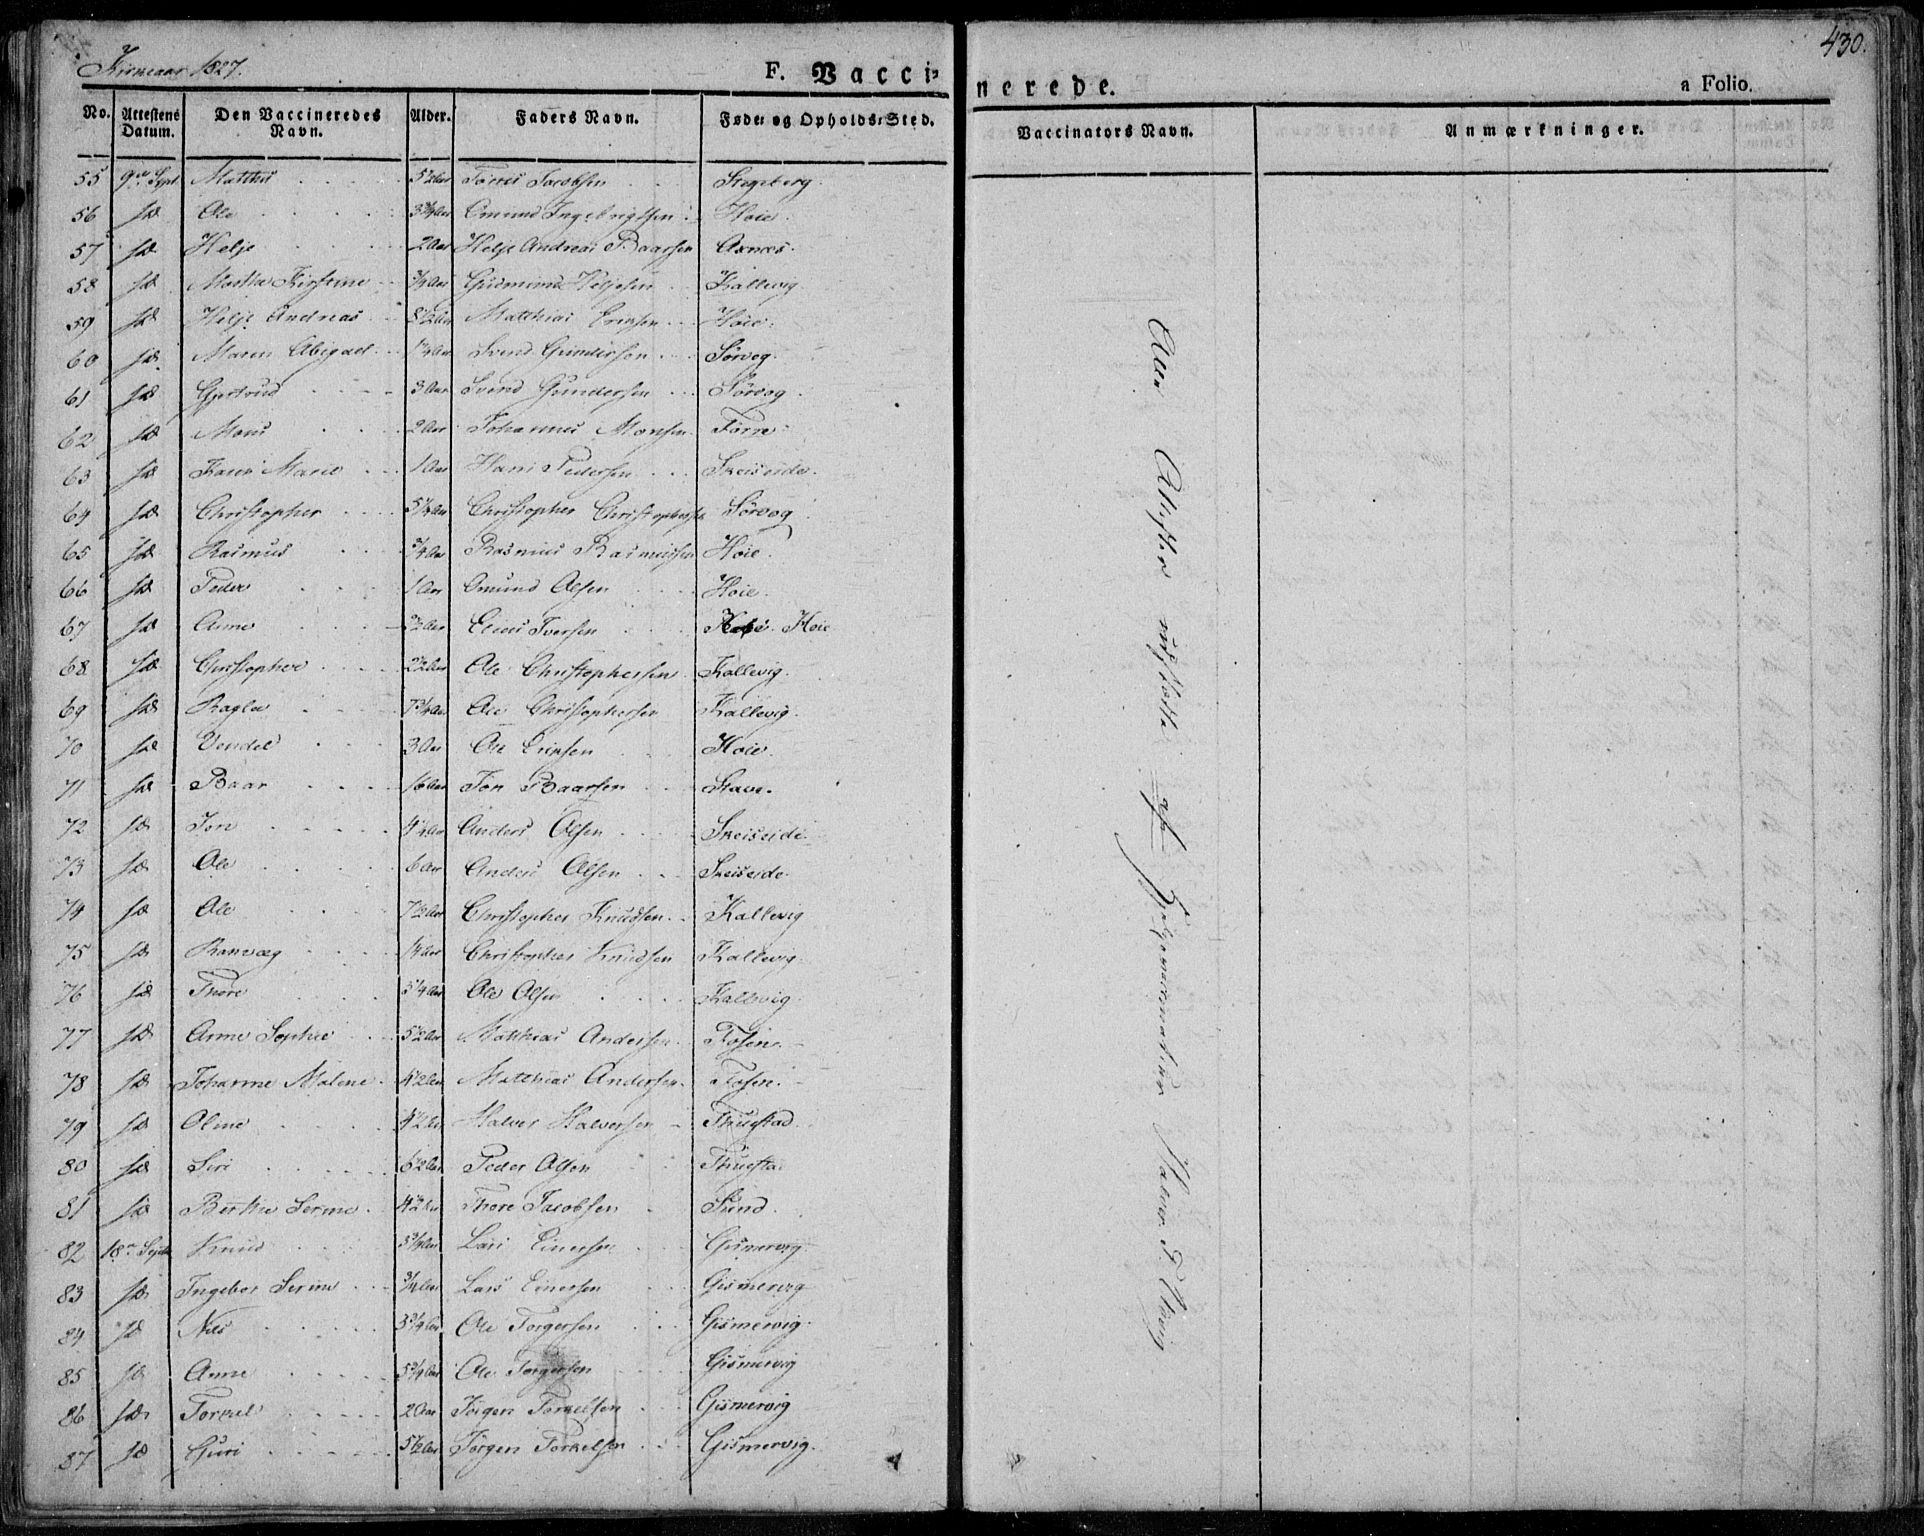 430.
Kirkeaar 1827.
F. Vacci-
nerede.
a Folio.
No. Attestens Datum. Den Vaccineredes Navn. Alder. Faders Navn. Føde- og Opholds-Sted. Vaccinators Navn. Anmærkninger.
55 9de Sept Matthis 5 1/2 Aar Tørres Jacobsen Stegeberg
56 do Ole 3 3/4 Aar Omund Ingebrigtsen Høie
57 do Helje 2 Aar Helje Andreas Baarsen Axnes
58 do Marthe Kirstine 3/4 Aar Gudmund Heljesen Kallevig
59 do Helje Andreas 8 1/2 Aar Matthias Ericsen Høie
60 do Maren Abigael 1 1/4 Aar Svend Gundersen Sørvog
61 do Gjertrud 3 Aar Svend Gundersen Sørvog
62 do Mons 2 Aar Johannes Monsen Førre
63 do Karen Marie 1 Aar Hans Pedersen Skeiseide
64 do Christopher 5 1/4 Aar Christopher Christophersen Sørvog
65 do Rasmus 3/4 Aar Rasmus Rasmussen Høie
66 do Peder 1 Aar Omund Olsen Høie
67 do Anne Elias Iversen Høie
68 do Christopher 2 1/2 Aar Ole Christophersen Kallevig
69 do Ragla 7 3/4 Aar Ole Christophersen Kallevig
70 do Vendel 3 Aar Ole Ericsen Høie
71 do Baar 16 Aar Jon Baarsen Stave
72 do Jon 4 1/2 Aar Anders Olsen Skeiseide
73 do Ole 6 Aar Anders Olsen Skeiseide
74 do Ole 7 1/2 Aar Christopher Knudsen Kallevig
75 do Ranvæg 1/4 Aar Christopher Knudsen Kallevig
76 do Thore 5 1/4 Aar Ole Olsen Kallevig
77 do Anne Sophie 5 1/2 Aar Matthias Andersen Fosen
78 do Johanne Malene 4 1/2 Aar Matthias Andersen Fosen
79 do Oline 4 1/2 Aar Halver Halversen Thuestad
80 do Siri 6 1/2 Aar Peder Olsen Thuestad
81 do Berthe Serine 4 1/2 Aar Thore Jacobsen Sund
82 18de Sept Knud 3 3/4 Aar Lars Einersen Gismervig
83 do Ingebor Serine 3/4 Aar Lars Einersen Gismervig
84 do Nils 3 3/4 Aar Ole Torgersen Gismervig
85 do Anne 5 3/4 Aar Ole Torgersen Gismervig
86 do Torkel 2 Aar Jörgen Torkelsen Gismervig
87 do Guri 5 1/2 Aar Jörgen Torkelsen Gismervig
Alle Attester udstædte af